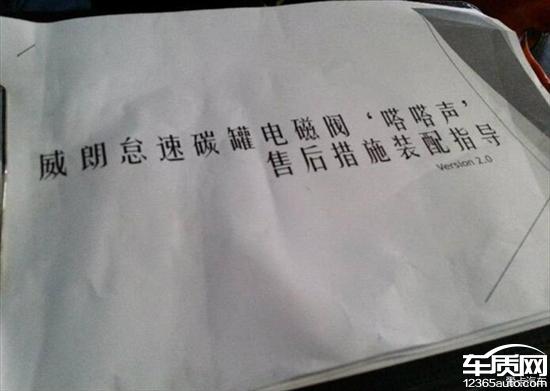 威朗怠速碳罐电磁阀‘嗒嗒声’
售后措施装配指导
Version 2.0
车质网
12365auto.com